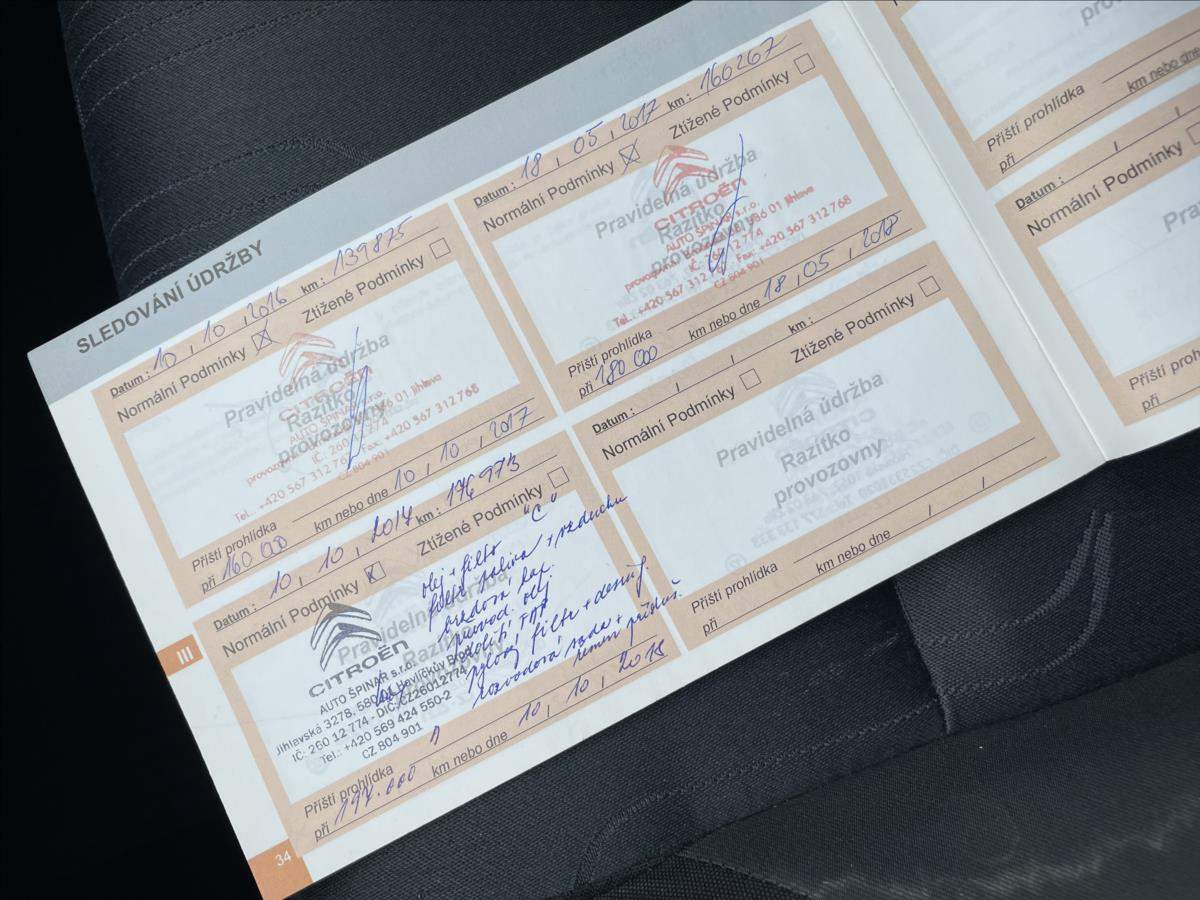 SLEDOVÁNÍ ÚDRŽBY
Datum : 10 , 10 , 2016 km : 139875
Normální Podmínky ☒ Ztížené Podmínky ☐
Pravidelná údržba
Razítko
provozovny
CITROËN
AUTO ŠPINAR s.r.o.
01 Jihlava
IČ: 260 12 774
Tel.: +420 567 312 767 Fax: +420 567 312 768
CZ 804 901
Příští prohlídka
při 160 000 km nebo dne 10 , 10 , 2017
Datum : 18 , 05 , 2017 km : 160267
Normální Podmínky ☒ Ztížené Podmínky ☐
Pravidelná údržba
Razítko
provozovny
CITROËN
AUTO ŠPINAR s.r.o.
586 01 Jihlava
IČ: 12 774
Tel.: +420 567 312 Fax: +420 567 312 768
CZ 804 901
Příští prohlídka
při 180 000 km nebo dne 18 , 05 , 2018
Datum : 10 , 10 , 2017 km : 176973
Normální Podmínky ☒ Ztížené Podmínky ☐
Pravidelná údržba
Razítko
"C"
olej + filtr
filtr paliva + vzduchu
brzdová kap.
převod. olej
pylový filtr + desinf.
rozvodová sada +
řemen přísluš.
CITROËN
AUTO ŠPINAR s.r.o.
Jihlavská 3278, 580 01 Havlíčkův Brod
IČ: 260 12 774 - DIČ: CZ26012774
Tel.: +420 569 424 550-2
CZ 804 901
Příští prohlídka
při 197.000 km nebo dne 10 , 10 , 2018
Datum : km :
Normální Podmínky ☐ Ztížené Podmínky ☐
Pravidelná údržba
Razítko
provozovny
Příští prohlídka
při km nebo dne
Příští prohlídka
při km nebo dne
Datum :
Normální Podmínky
Příští prohlídka
při
III
34